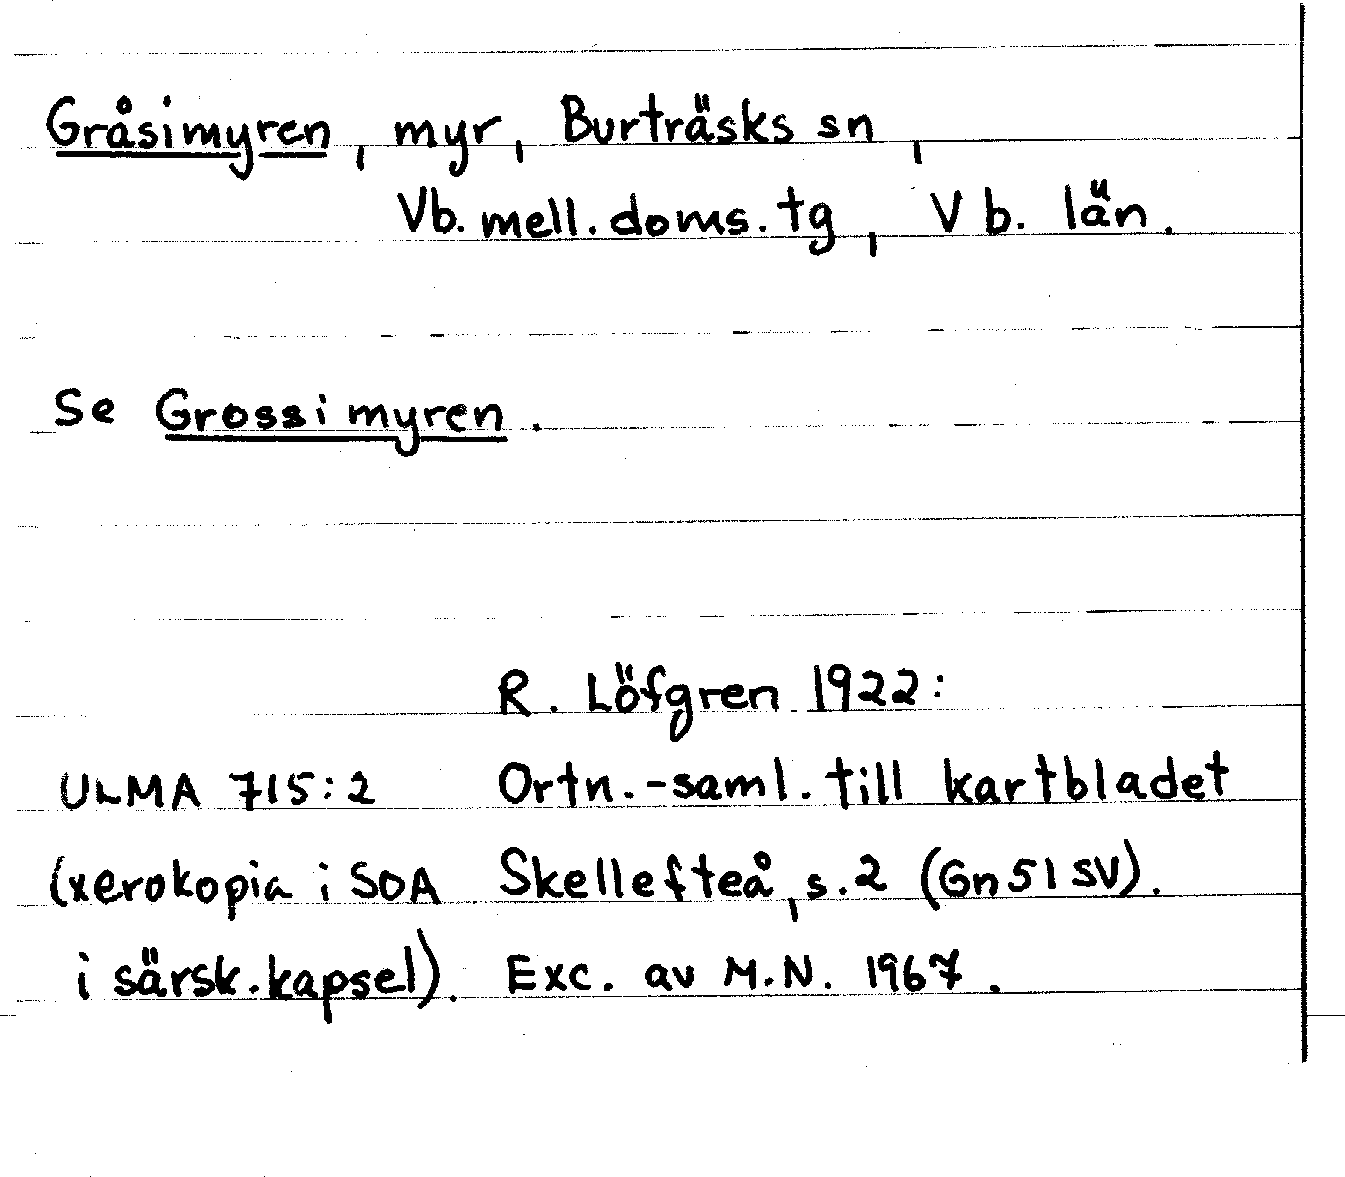 Gråsimyren, myr, Burträsks sn,
Vb. mell. doms. tg, Vb. län.
Se Grossimyren.
R. Löfgren 1922:
ULMA 715:2 Ortn.-saml. till kartbladet
(xerokopia i SOA Skellefteå, s.2 (Gn 51 SV).
i särsk. kapsel). Exc. av M.N. 1967.